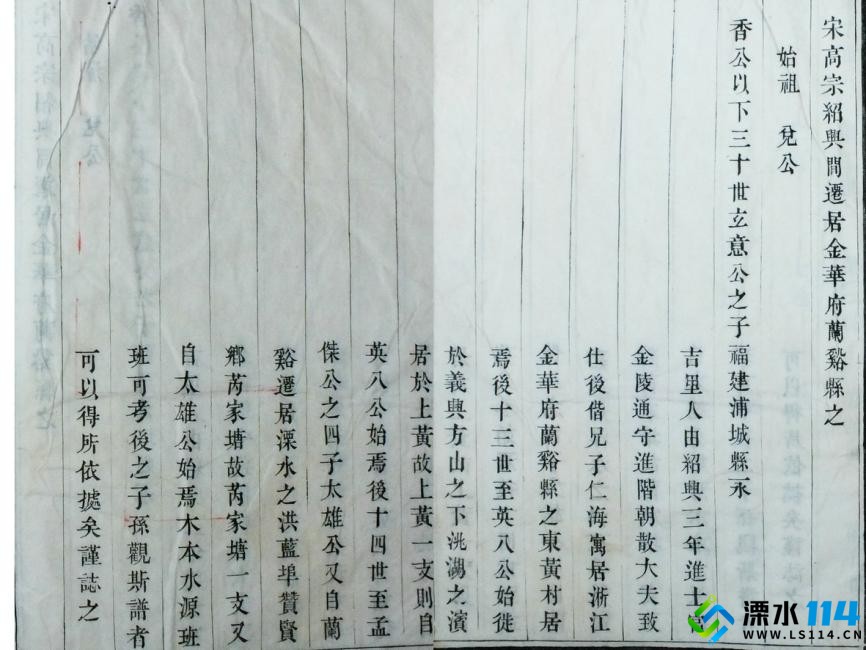 宋高宗紹興間遷居金華府蘭谿縣之
始祖 兌公
香公以下三十世立意公之子福建浦城縣永
吉里人由紹興三年進士官
金陵通守進階朝散大夫致
仕後偕兄子仁海寓居浙江
金華府蘭谿縣之東黃村居
焉後十三世至英八公始徙
於義興方山之下洮湖之濱
居於上黃故上黃一支則自
英八公始焉後十四世至孟
傑公之四子太雄公又自蘭
谿遷居溧水之洪藍埠贊賢
鄉芮家塘故芮家塘一支又
自太雄公始焉木本水源班
班可考後之子孫觀斯譜者
可以得所依據矣謹誌之
溧水114
WWW.LS114.CN